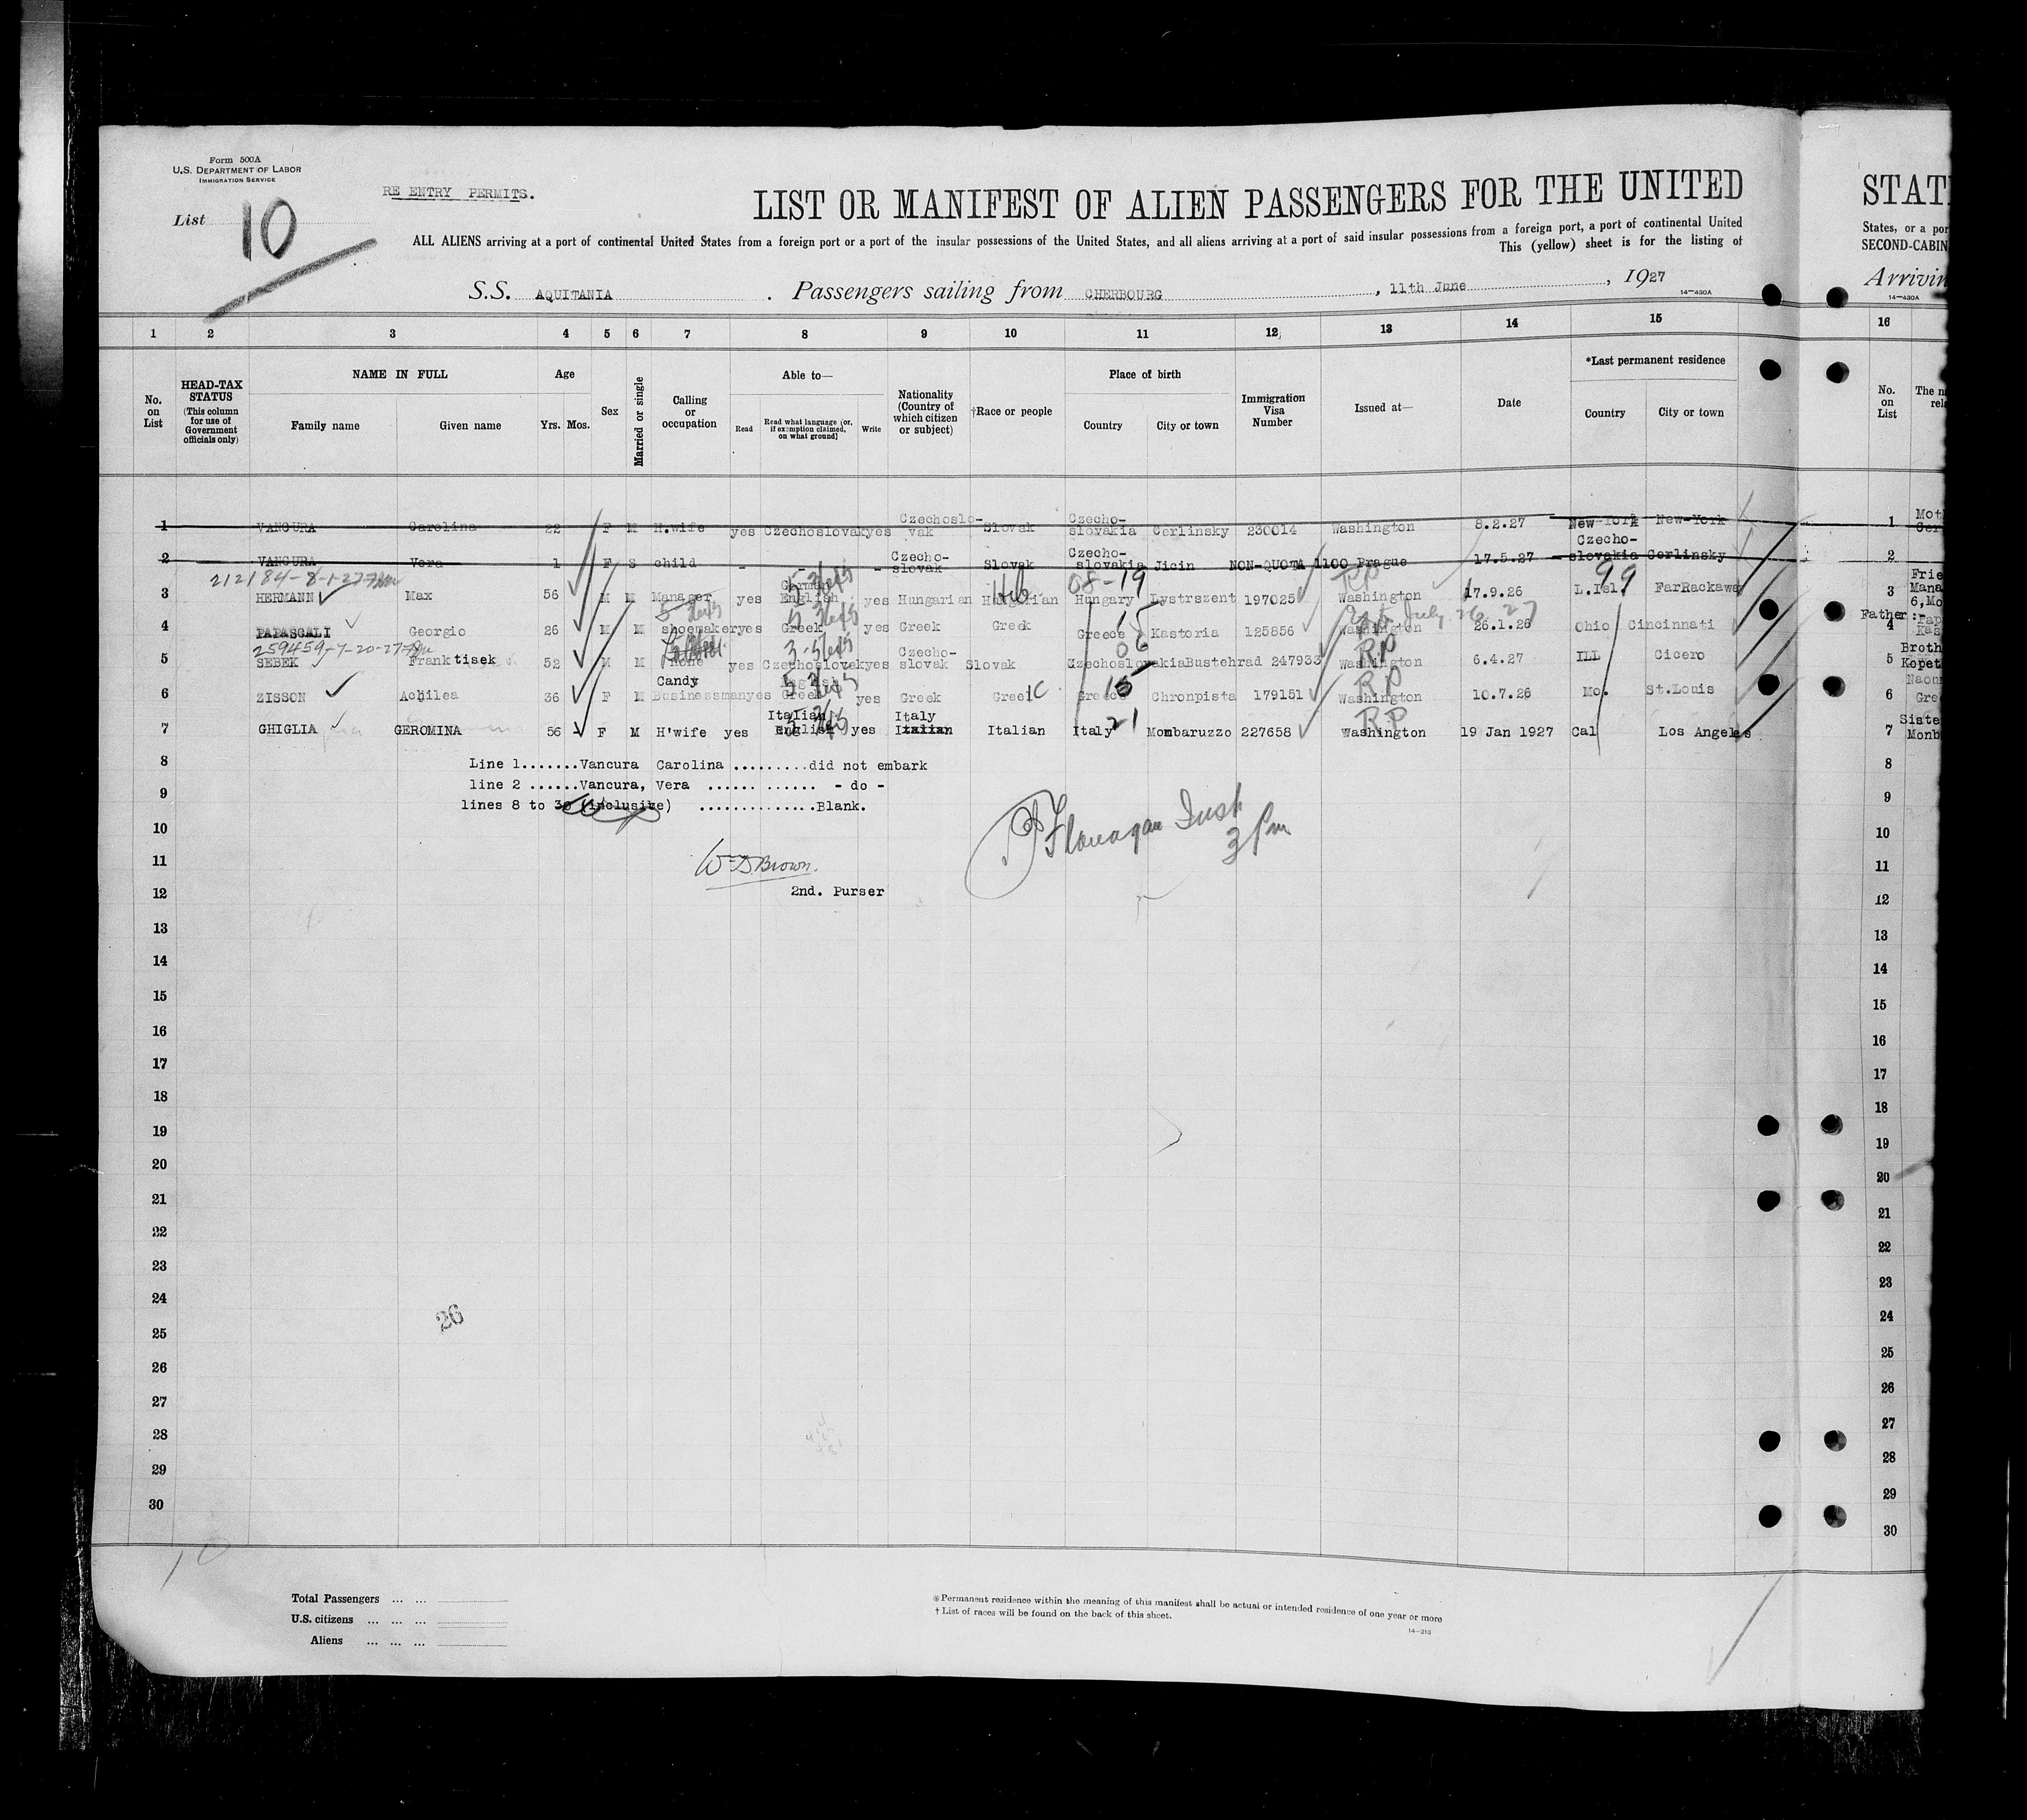 Form 500A
U.S. DEPARTMENT OF LABOR
IMMIGRATION SERVICE
RE ENTRY PERMITS.
List 10
LIST OR MANIFEST OF ALIEN PASSENGERS FOR THE UNITED STAT
ALL ALIENS arriving at a port of continental United States from a foreign port or a port of the insular possessions of the United States, and all aliens arriving at a port of said insular possessions from a foreign port, a port of continental United States, or a por
This (yellow) sheet is for the listing of SECOND-CABIN
S.S. AQUITANIA . Passengers sailing from CHERBOURG , 11th June , 1927 Arrivin
14—430A 14—430A
1 2 3 4 5 6 7 8 9 10 11 12 13 14 15 16
No. on List
HEAD-TAX STATUS (This column for use of Government officials only)
NAME IN FULL Family name Given name
Age Yrs. Mos.
Sex
Married or single
Calling or occupation
Able to— Read Read what language [or, if exemption claimed, on what ground] Write
Nationality (Country of which citizen or subject)
†Race or people
Place of birth Country City or town
Immigration Visa Number
Issued at—
Date
*Last permanent residence Country City or town
No. on List
The n rel
1 VANCURA Carolina 22 F M H.wife yes Czechoslovak yes Czechoslo-vak Slovak Czecho-slovakia Cerlinsky 230014 Washington 8.2.27 New-York New-York 1 Mot
2 VANCURA Vera 1 F S child - - - Czecho-slovak Slovak Czecho-slovakia Jicin NON-QUOTA 1100 Prague 17.5.27 Czecho-slovakia Cerlinsky 2
212184-8-1-27
3 HERMANN Max 56 M M Manager yes German English yes Hungarian Hungarian Heb Hungary 08-19 Lystrszent 197025 Washington RP 17.9.26 L.Isl. 99 FarRackaway 3 Frie Mana 6,Mo
4 PAPASCALI Georgio 26 M M shoemaker yes Greek yes Greek Greek Greece 15 Kastoria 125856 Washington July 26 27 26.1.26 Ohio Cincinnati Father : 4 Pap Kas
259459-7-20-27
5 SEBEK Franktisek 52 M M None yes Czechoslovak yes Czecho-slovak Slovak Czechoslovakia 06 Bustehrad 247933 Washington RP 6.4.27 ILL Cicero 5 Broth Kopet
6 ZISSON Achilea 36 F M Candy Businessman yes English Greek yes Greek Greek Greece 15 Chronpista 179151 Washington RP 10.7.26 Mo. St.Louis 6 Naou Gre
7 GHIGLIA GEROMINA 56 F M H'wife yes Italian English yes Italy Italian Italian Italy 21 Mombaruzzo 227658 Washington RP 19 Jan 1927 Cal Los Angeles 7 Siste Monb
8 Line 1.......Vancura Carolina .........did not embark 8
line 2 ......Vancura, Vera ...... ...... - do -
9 lines 8 to 30 (inclusive) ..............Blank. 9
Flanagan Insp
3 Pm
10 10
11 W. D. Brown. 11
12 2nd. Purser 12
13 13
14 14
15 15
16 16
17 17
18 18
19 19
20 20
21 21
22 22
23 23
24 24
26
25 25
26 26
27 27
28 28
29 29
30 30
10
Total Passengers ... ...
U.S. citizens ... ... ...
Aliens ... ... ...
* Permanent residence within the meaning of this manifest shall be actual or intended residence of one year or more
† List of races will be found on the back of this sheet.
14—213